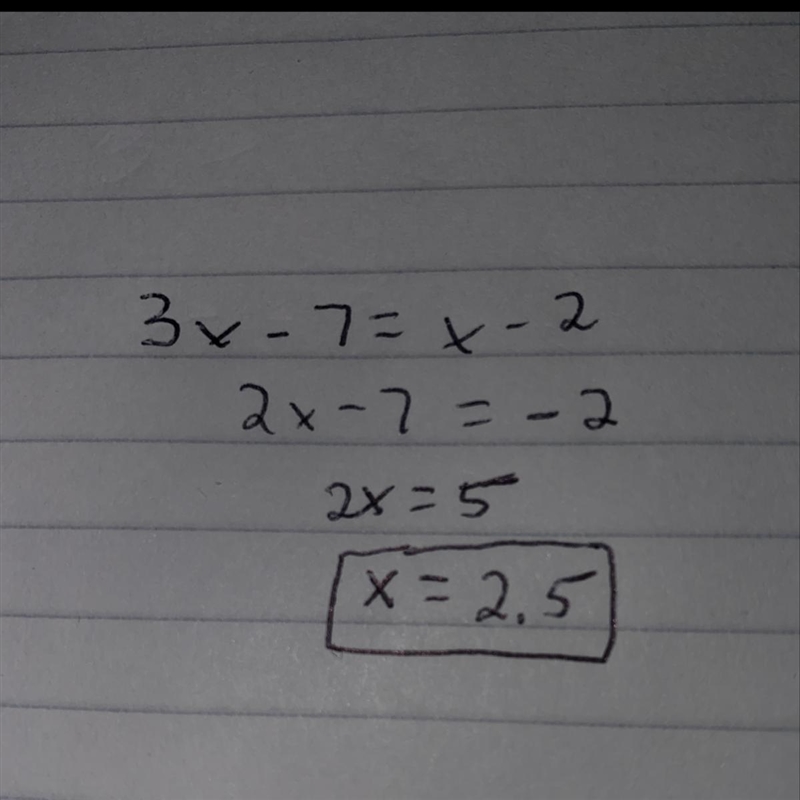 3x - 7 = x - 2
2x - 7 = - 2
2x = 5
x = 2.5